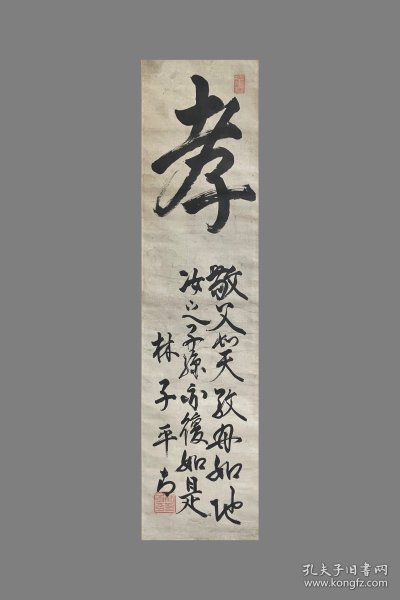 孝
敬父如天敬母如地
汝之子孫亦復如是
林子平书
孔夫子旧书网
www.kongfz.com